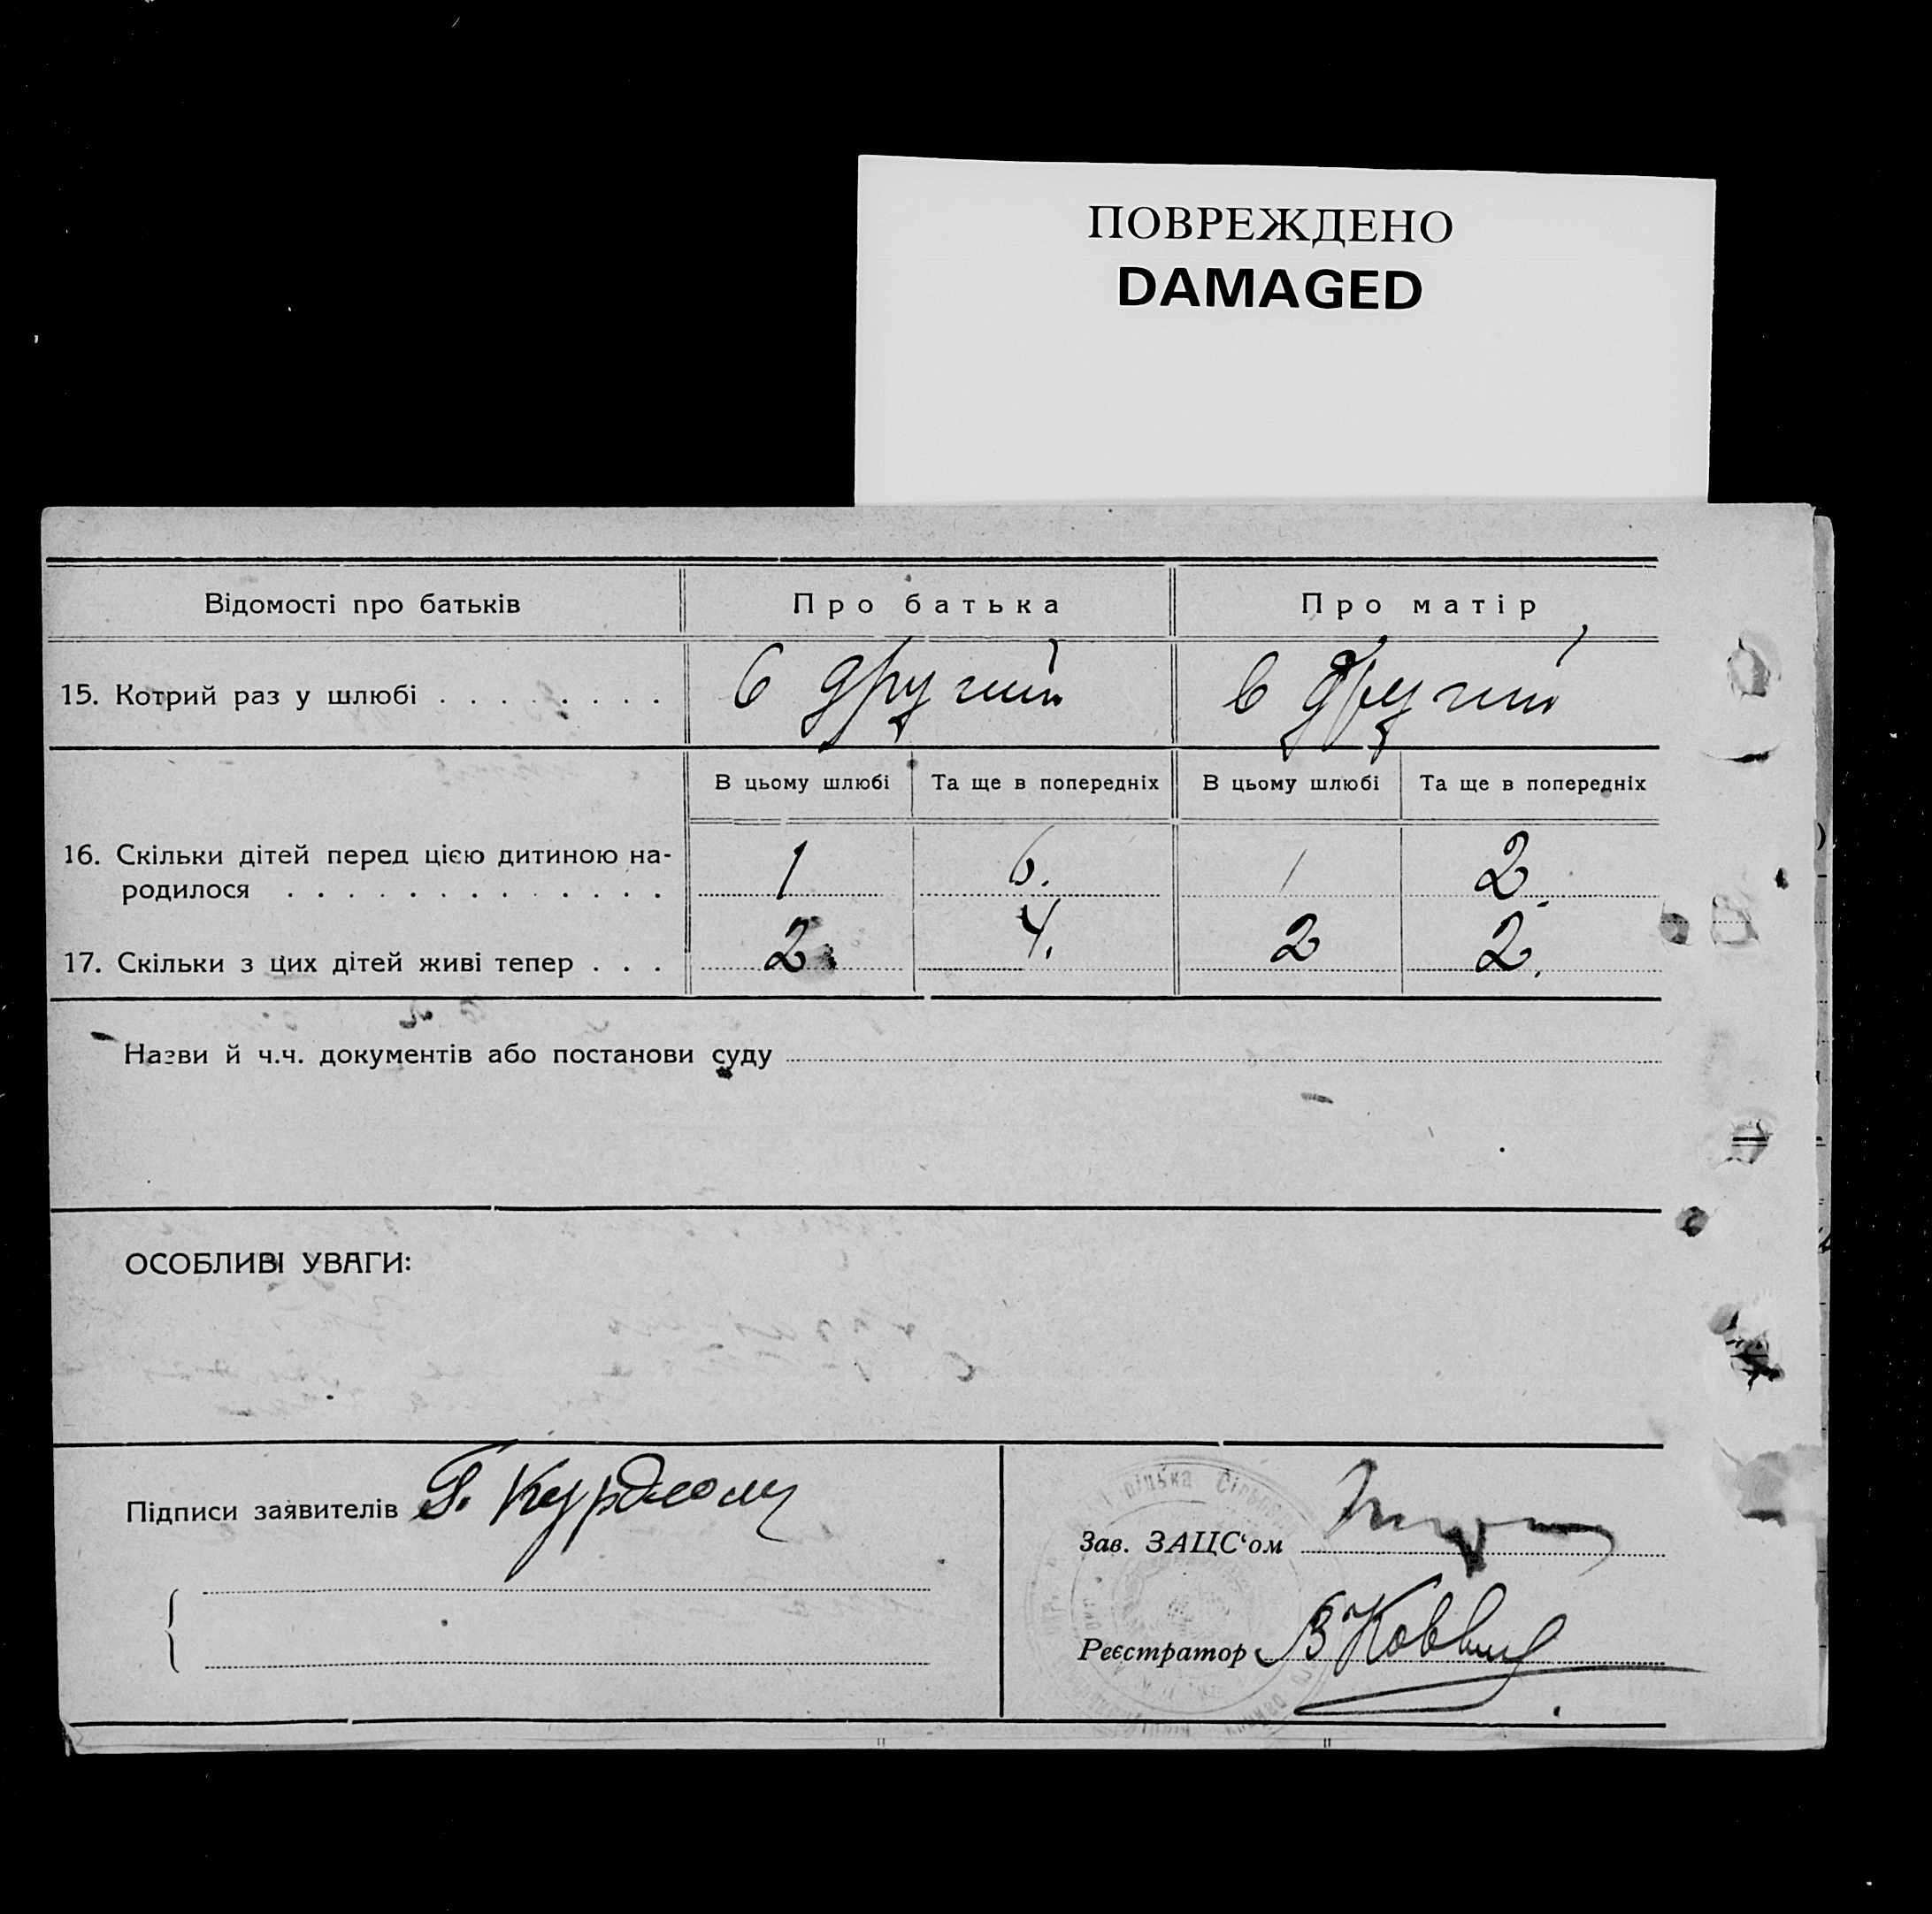 ПОВРЕЖДЕНО
DAMAGED
Відомості про батьків
Про батька
Про матір
15. Котрий раз у шлюбі . . . . . . . .
в другий
в другий
В цьому шлюбі
Та ще в попередніх
В цьому шлюбі
Та ще в попередніх
16. Скільки дітей перед цією дитиною на-
родилося . . . . . . . . . . . . .
1
6.
1
2
17. Скільки з цих дітей живі тепер . . .
2
4.
2
2.
Назви й ч.ч. документів або постанови суду
ОСОБЛИВІ УВАГИ:
Підписи заявителів
Зав. ЗАЦС‘ом
Реєстратор